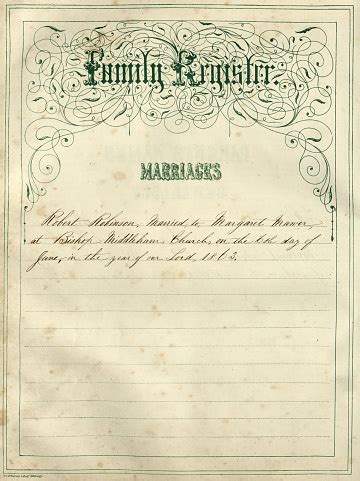 Family Register.
MARRIAGES
Robert Robinson, Married, to Margaret
at Bishop Middleham, Church, on the day of
June, in the year of our Lord, 1863.